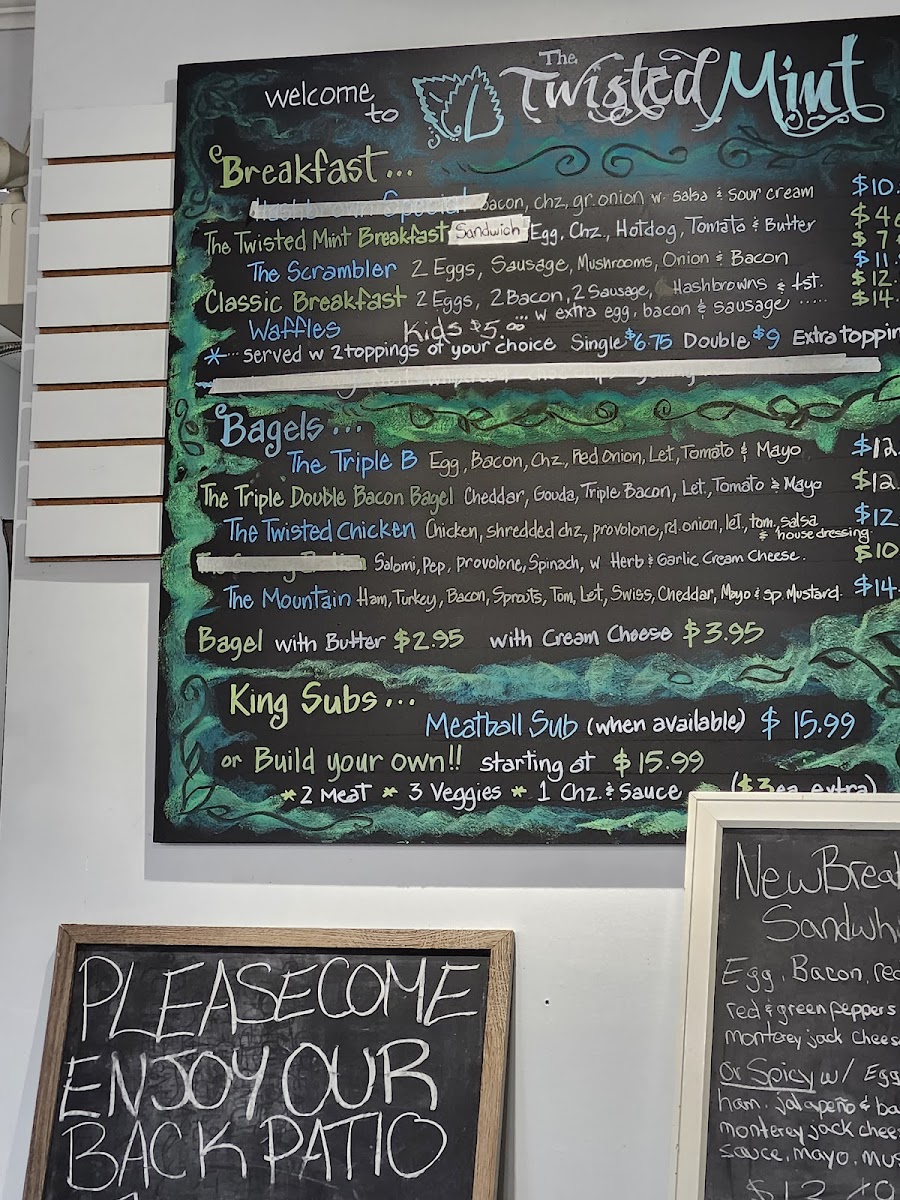 welcome to The Twisted Mint
Breakfast...
Hashbrown Special Bacon, chz, gr. onion w. salsa & sour cream $10.
The Twisted Mint Breakfast Sandwich Egg, Chz, Hotdog, Tomato & Butter
$7
The Scrambler 2 Eggs, Sausage, Mushrooms, Onion & Bacon $11.
Classic Breakfast 2 Eggs, 2 Bacon, 2 Sausage, Hashbrowns & tst. $12.
... w extra egg, bacon & sausage ..... $14.
Waffles Kids $5.00
*... served w 2 toppings of your choice Single $6.75 Double $9 Extra toppin
Bagels...
The Triple B Egg, Bacon, Chz, Red Onion, Let, Tomato & Mayo $12.
The Triple Double Bacon Bagel Cheddar, Gouda, Triple Bacon, Let, Tomato & Mayo $12.
The Twisted Chicken Chicken, shredded chz, provolone, rd. onion, let, tom, salsa $12
& house dressing
Salomi, Pep, Provolone, Spinach, w Herb & Garlic Cream Cheese. $10
The Mountain Ham, Turkey, Bacon, Sprouts, Tom, Let, Swiss, Cheddar, Mayo & sp. Mustard. $14
Bagel with Butter $2.95 with Cream Cheese $3.95
King Subs...
Meatball Sub (when available) $15.99
or Build your own!! starting at $15.99
* 2 Meat * 3 Veggies * 1 Chz. & Sauce ($3ea extra)
PLEASE COME
ENJOY OUR
BACK PATIO
New Brea
Sandwh
Egg, Bacon, red
red & green peppers
monterey jack chees
Or Spicy w/ Egg
ham, jalapeño & ba
monterey jack chee
sauce, mayo, mus